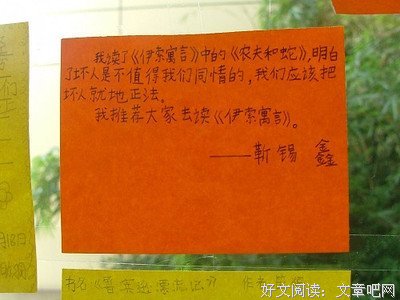 我读了《伊索寓言》中的《农夫和蛇》,明白
了坏人是不值得我们同情的,我们应该把
坏人就地正法。
我推荐大家去读《伊索寓言》。
——靳锡鑫
月18日
好文阅读：文章吧网